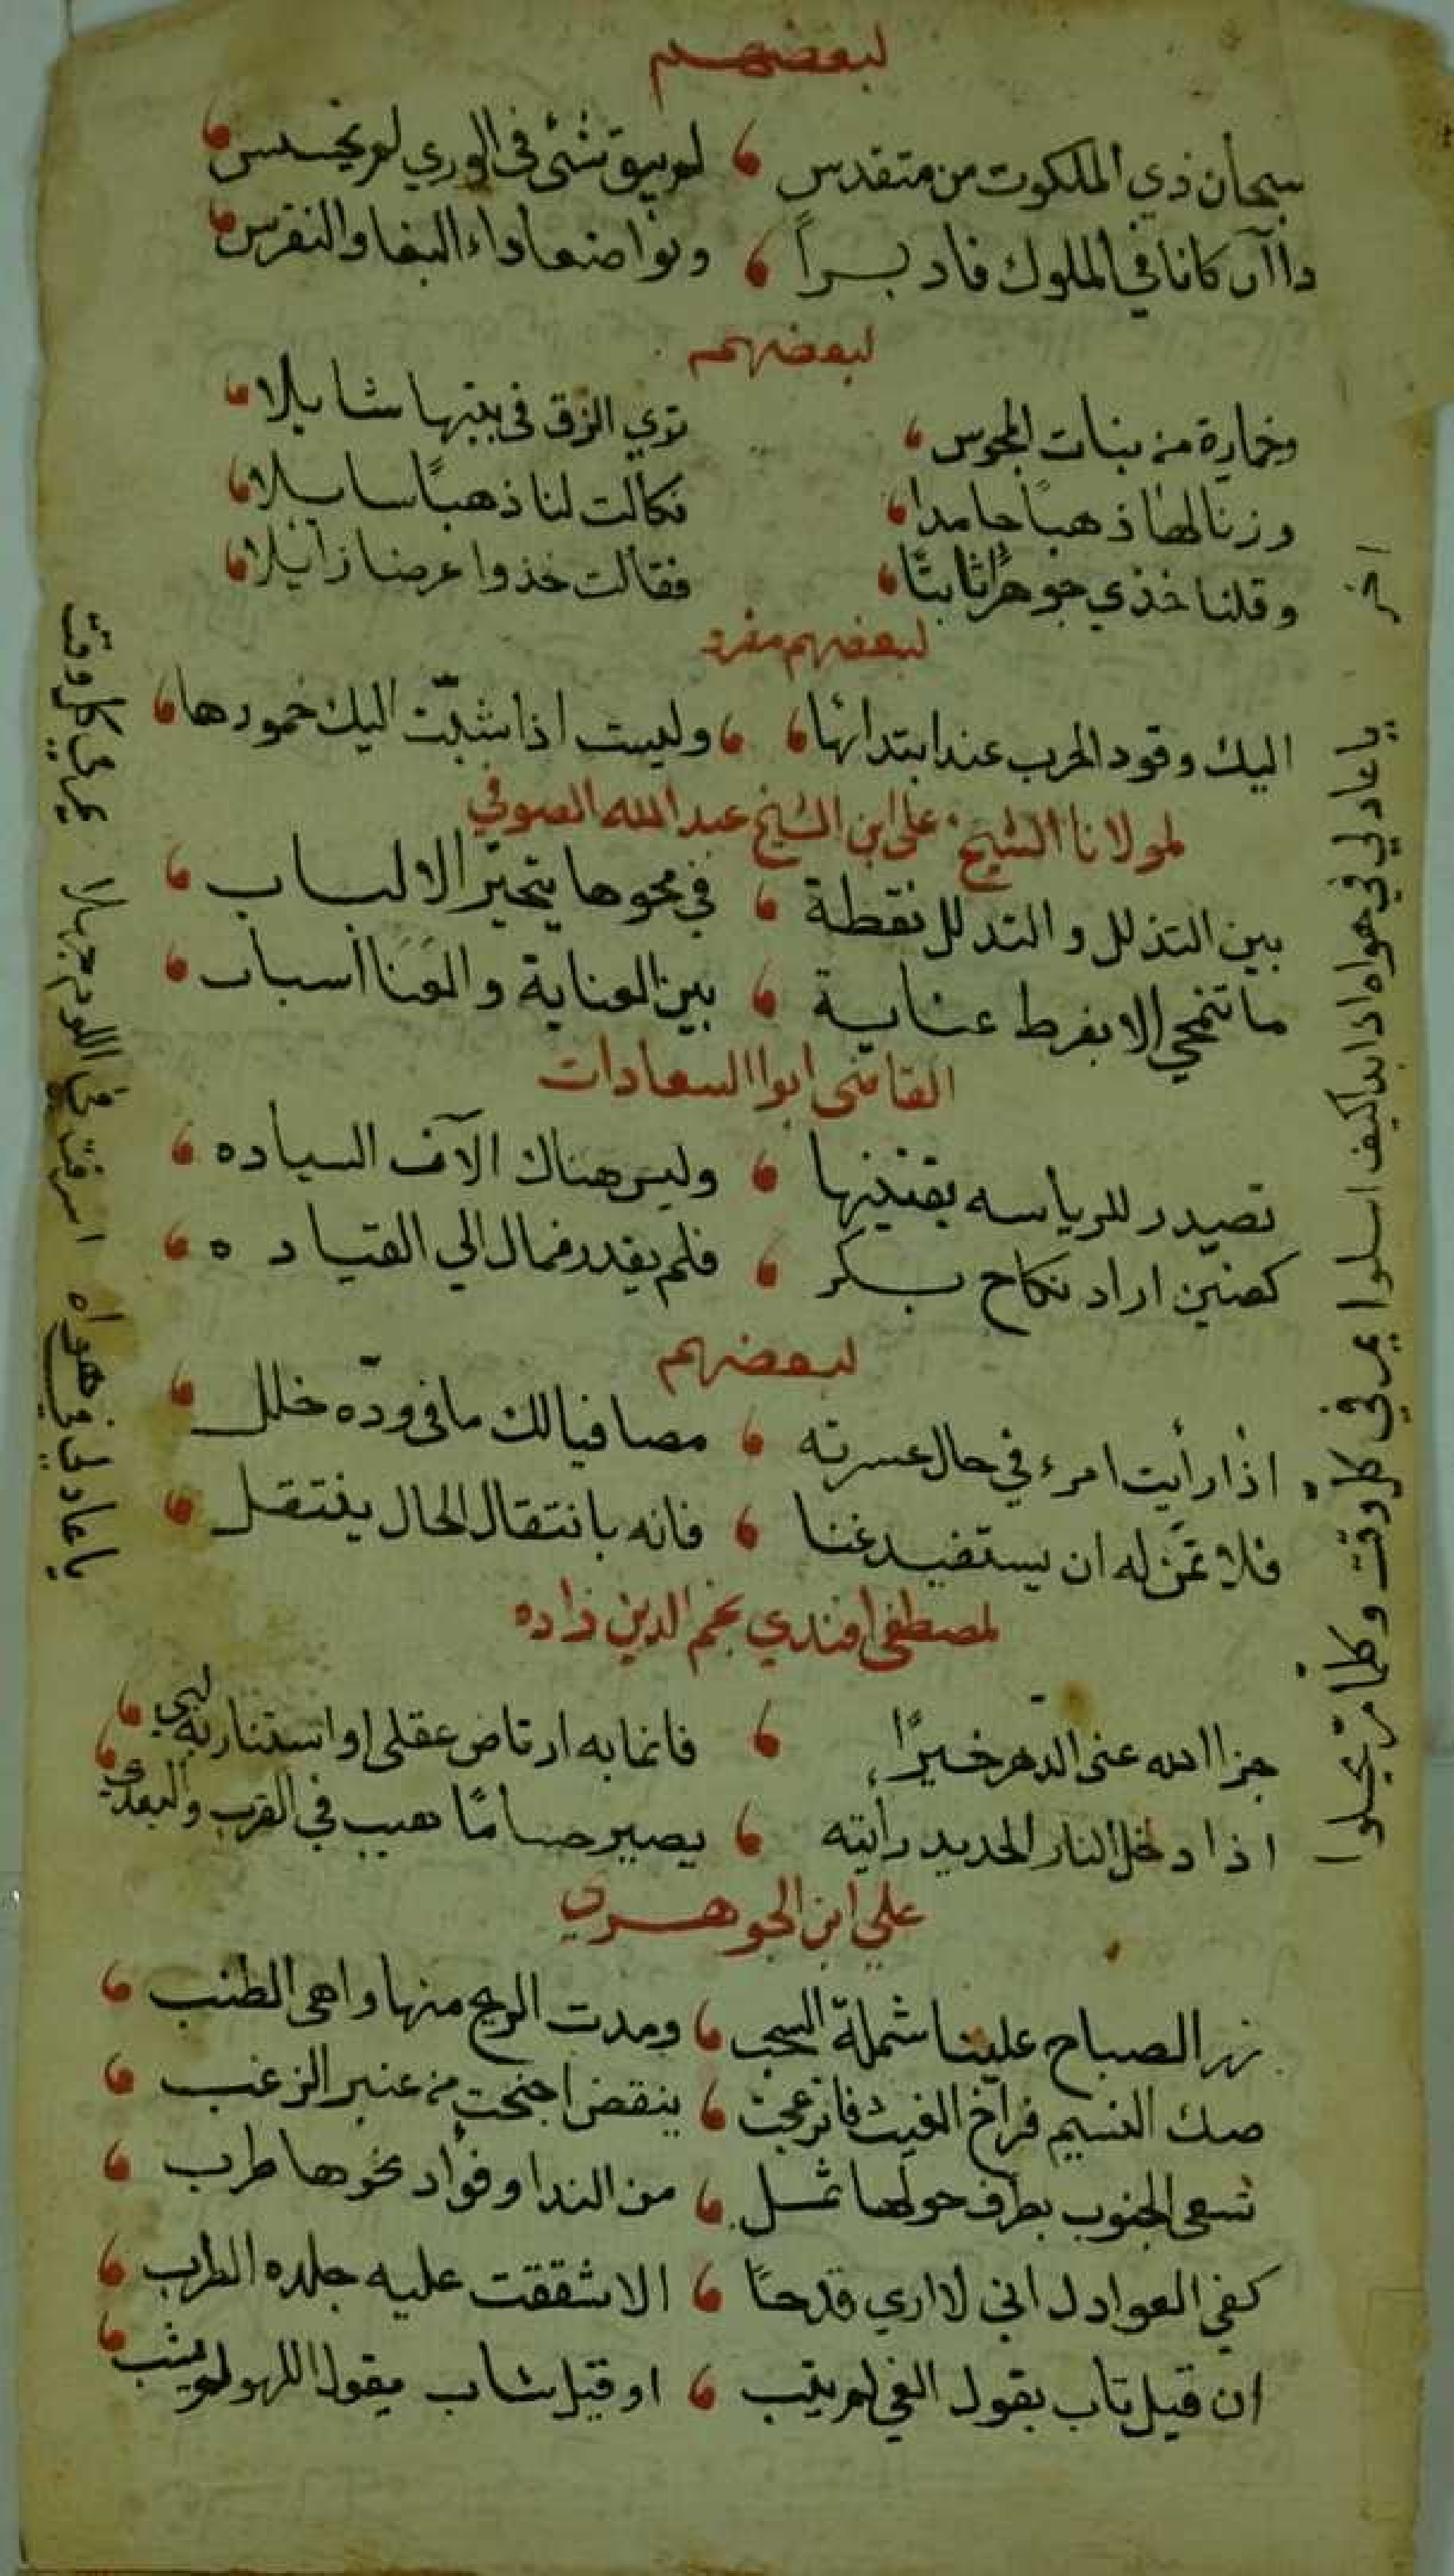 لبعضهم
سبحان ذي الملكوت من متقدس لم يبق شئ في الوري لم يخسس
داآن كانا في الملوك فادبراً وتواضعا داء البغا والنقرس
لبعضهم
وخمارة من بنات المجوس تري الزق في بيتها شايلا
وزنا لها ذهباً جامدا فكالت لنا ذهباً سايلا
وقلنا خذي جوهرًا ثابتًا فقالت خذوا عرضا زايلا
لبعضهم مفرد
اليك وقود الحرب عند ابتدائها وليست اذا شبّت اليك خمودها
لمولانا الشيخ علي ابن الشيخ عبد الله الصوفي
بين التذلل والتدلل نقطة في محوها يتحيّر الالباب
ما تنمحي الا بفرط عناية بين العناية والعَنَا اسباب
القاضي ابوا السعادات
تصدر للرياسه يقتنيها وليس هناك الآف السياده
كعنين اراد نكاح بكر فلم يقدر فمال الي القياده
لبعضهم
اذا رأيت امرء في حال عسرته مصافيا لك ما في ودّه خلل
فلا تمنّ له ان يستفيد غنا فانه بانتقال الحال ينتقل
لمصطفى افندي نجم الدين زاده
جزا الله عني الدهر خيرًا فانما به ارتاض عقلي او استنار به لبي
اذا دخل النار الحديد رأيته يصير حسامًا هيب في القرب والبعد
علي ابن الجوهري
زر الصباح علينا شملة السحب ومدت الريح منها واهي الطنب
صك النسيم فراخ الغيث فانزعجت ينقض اجنحت من عنبر الزغب
تسعى الجنوب بطرف حولها ثمل من الندا وفؤاد نحوها طرب
كفي العوادل اني لا اري قدحًا الا شققت عليه جلده الطرب
ان قيل تاب يقول الغي لم يتب او قيل شاب يقول اللهو لم يشب
اخر
يا عادلي في هواه اذا بدا كيف اسلوا يمر في كل وقت وكلما مرّ يحلوا
يا عادلي في هواه اسرفت في اللوم جهلا كل وقت